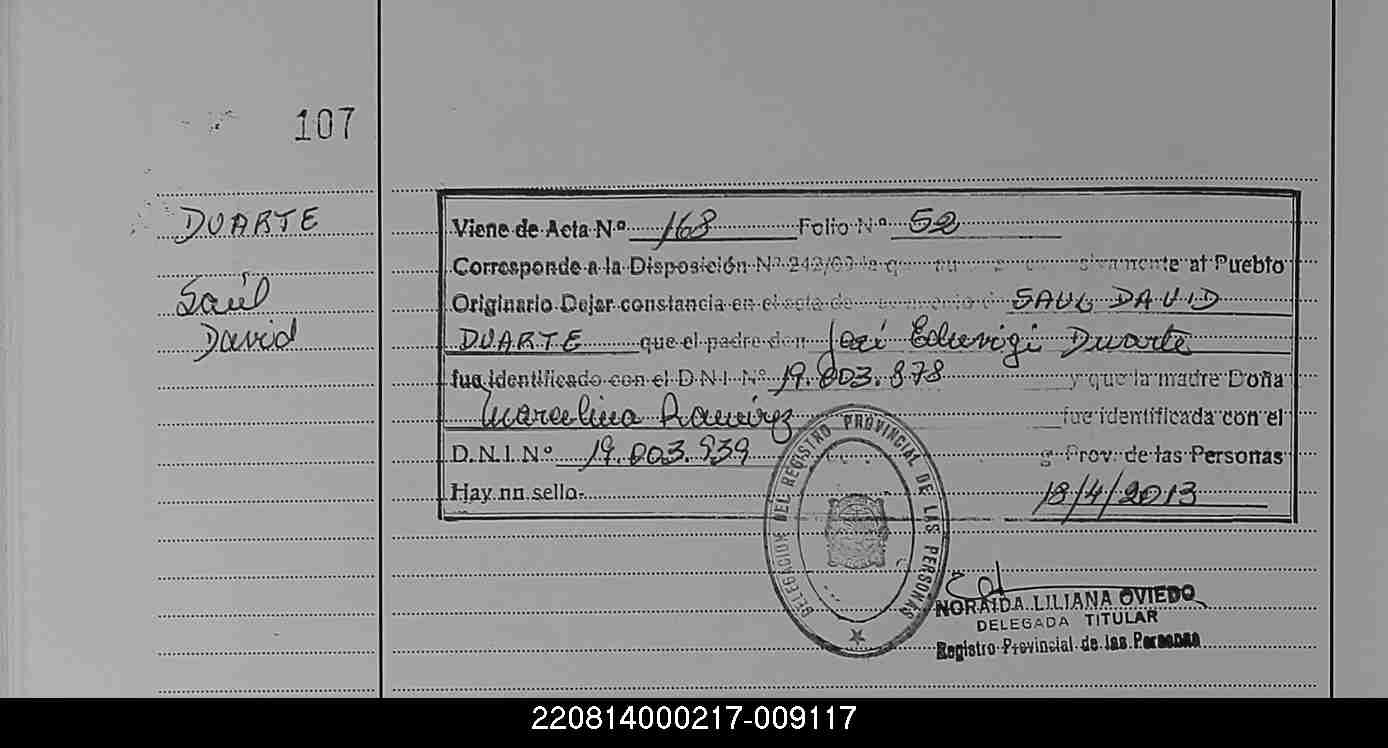 107
DUARTE
Saúl
David
Viene de Acta Nº 168 Folio Nº 52
Corresponde a la Disposición Nº 249/09 al Pueblo
Originario Dejar constancia en el acta de SAUL DAVID
DUARTE que el padre don José Eduvigi Duarte
fue identificado con el D.N.I. Nº 19.003.878 y que la madre Doña
Marcelina Ramirez fue identificada con el
D.N.I. Nº 19.003.939 Prov. de las Personas
Hay un sello. 18/4/2013
DELEGACION DEL REGISTRO PROVINCIAL DE LAS PERSONAS
NORAIDA LILIANA OVIEDO
DELEGADA TITULAR
Registro Provincial de las Personas
220814000217-009117